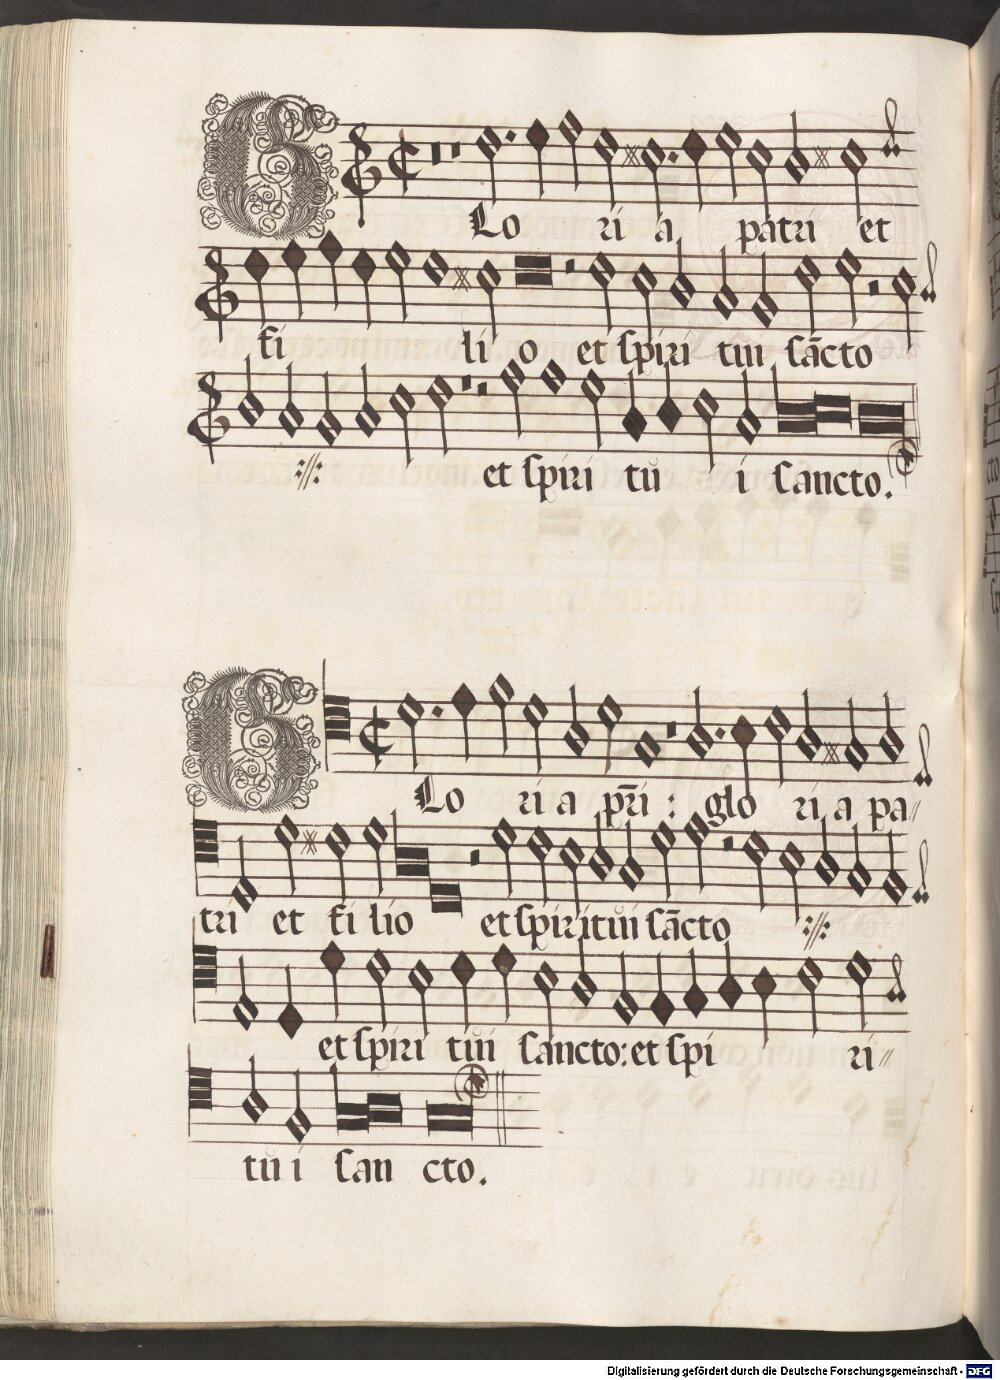 GLo ri a patri et
fi li o et spiri tui sācto
et spiri tu i sancto.
GLo ri a pr̄i : glo ri a pa
tri et fi lio et spiritui sācto
et spiri tui sancto: et spi ri
tu i san cto.
Digitalisierung gefördert durch die Deutsche Forschungsgemeinschaft - DFG